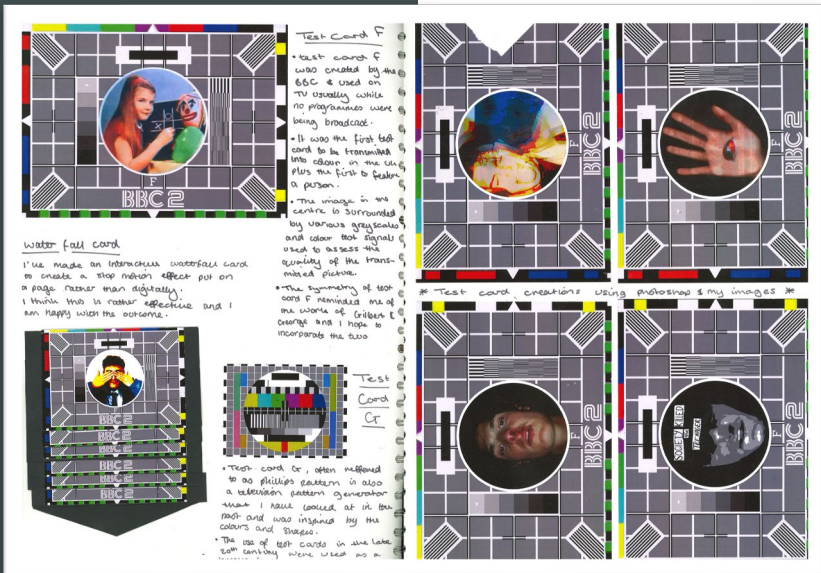 Test Card F
• test card F
was created by the
BBC & used on
TV usually while
no programmes were
being broadcast.
• It was the first test
card to be transmitted
into colour in the UK
plus the first to feature
a person.
• The image in the
centre is surrounded
by various greyscales
and colour test signals
used to assess the
quality of the trans-
mitted picture.
• The symmetry of test
card F reminded me of
the work of Gilbert &
George and I hope to
incorporate the two
F
BBC2
water fall card
I've made an interactive waterfall card
to create a stop motion effect put on
a page rather than digitally.
I think this is rather effective and I
am happy with the outcome.
BBC2
BBC2
BBC2
BBC2
BBC2
BBC2
Test
Card
G
• Test card G, often reffered
to as phillips pattern is also
a television pattern generator
that I have looked at in the
past and was inspired by the
colours and shapes.
• The use of test cards in the late
20th century were used as a
F
BBC2
F
BBC2
* Test card creations using photoshop & my images *
F
BBC2
SOCIETY KILLED
THE
TEENAGER
F
BBC2